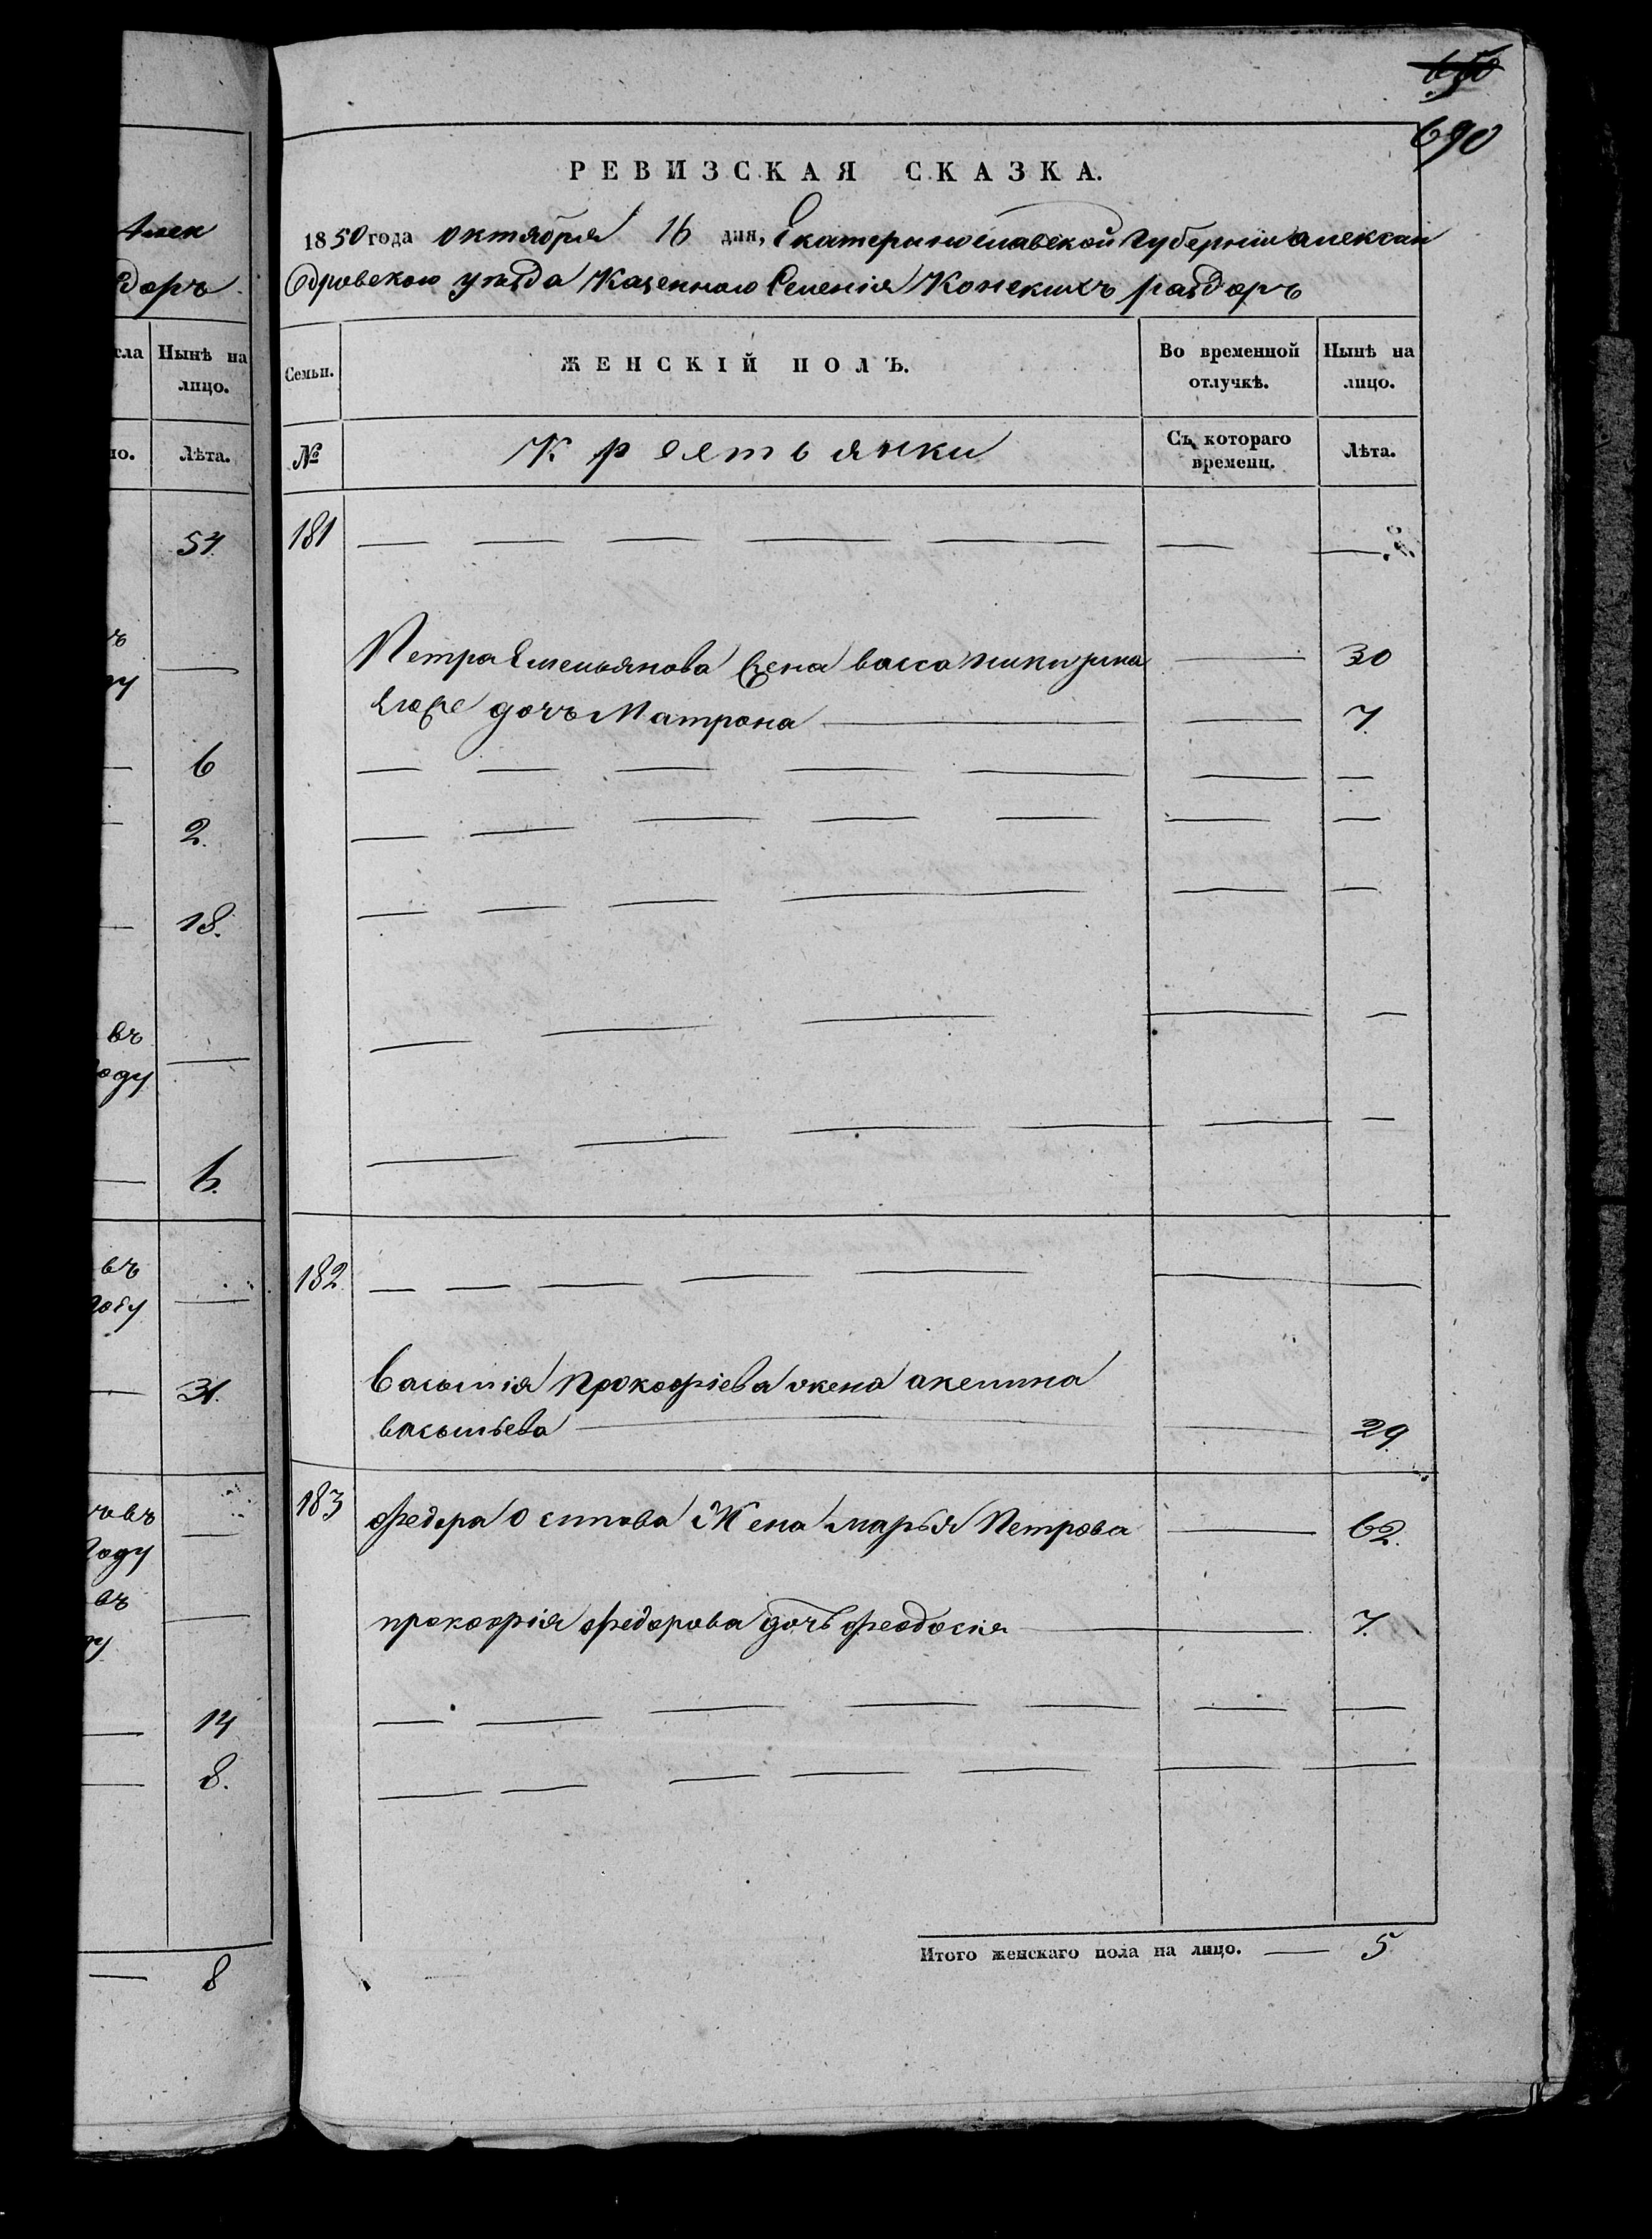 650
690
РЕВИЗСКАЯ СКАЗКА.
1850 года октября 16 дня, Екатеринославской Губернии алексан
дровскаго уѣзда Казеннаго Селенія Конскихъ раздоръ
Семьи. ЖЕНСКІЙ ПОЛЪ. Во временной отлучкѣ. Нынѣ на лицо.
№ Крестьянки Съ котораго времени. Лѣта.
181 — — — — — — —
Петра Емельянова жена васса — 30
Егоже дочь Матрона — — 7.
— — — — — — —
— — — — — — —
— — — — — —
— — — — —
— — — — — —
182 — — — — — — —
Василія прокофіева жена акелина
васильева — — 29.
183 федора осипова Жена марья Петрова — 62.
прокофія федорова дочь феодосія — 7.
— — — — — — —
— — — — — — —
Итого женскаго пола на лицо. — 5
Алек
доръ
Нынѣ на
лицо.
Лѣта.
54.
—
— 6
— 2.
— 18.
въ
оду —
— 6.
въ
году —
— 31.
въ
году —
въ
—
— 14
— 8.
— 8